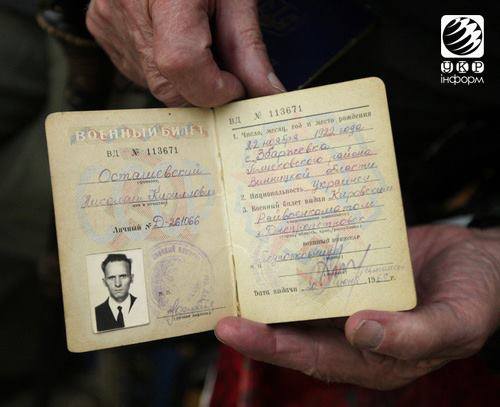 УКР
інформ
ВОЕННЫЙ БИЛЕТ
ВД № 113671
Осташевский
Николай Кириллович
Личный № Д-261066
ВД № 113671
1. Число, месяц, год и место рождения
22 ноября 1922 года
с. Збаржевка
района
Винницкой области
2. Национальность Украинец
3. Военный билет выдан Кировским
Райвоенкоматом
г. Днепропетровск
ВОЕННЫЙ КОМИССАР
Дата выдачи июня 19